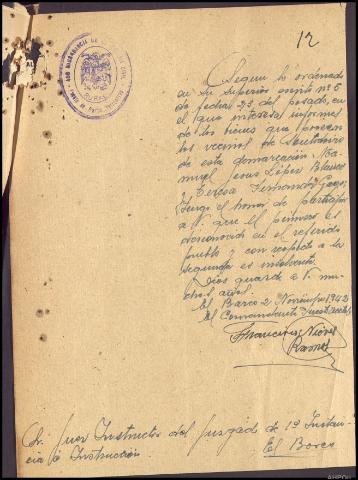 12
Segun lo ordenado
en su superior escrito nº 5
de fecha 23 del pasado, en
el que interesa informes
de los bienes que poseen
los vecinos de
de esta demarcación, Ma-
nuel Jesus López Blanco
y Teresa Fernandez
tengo el honor de participar
a V. que el primero es
desconocido en el referido
pueblo y con respecto a la
segunda es insolvente.
Dios guarde a V. mu-
chos años.
El Barco 2 Noviembre 1942
El Comandante
Francisco
Ramos
Sr. Juez Instructor del Juzgado de 1ª Instan-
cia é Instrucción.
El Barco